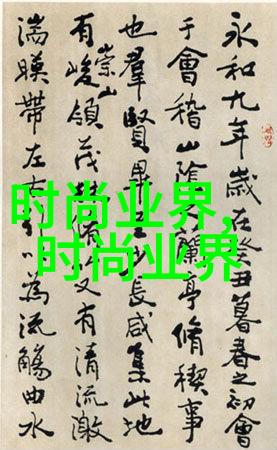 时尚业界,
时尚业界
永和九年歲在癸丑暮春之初會
于會稽山陰蘭亭脩稧事
也羣賢畢長咸集此地
有崇山峻領茂又有清流激
湍暎帶左右引以為流觴曲水